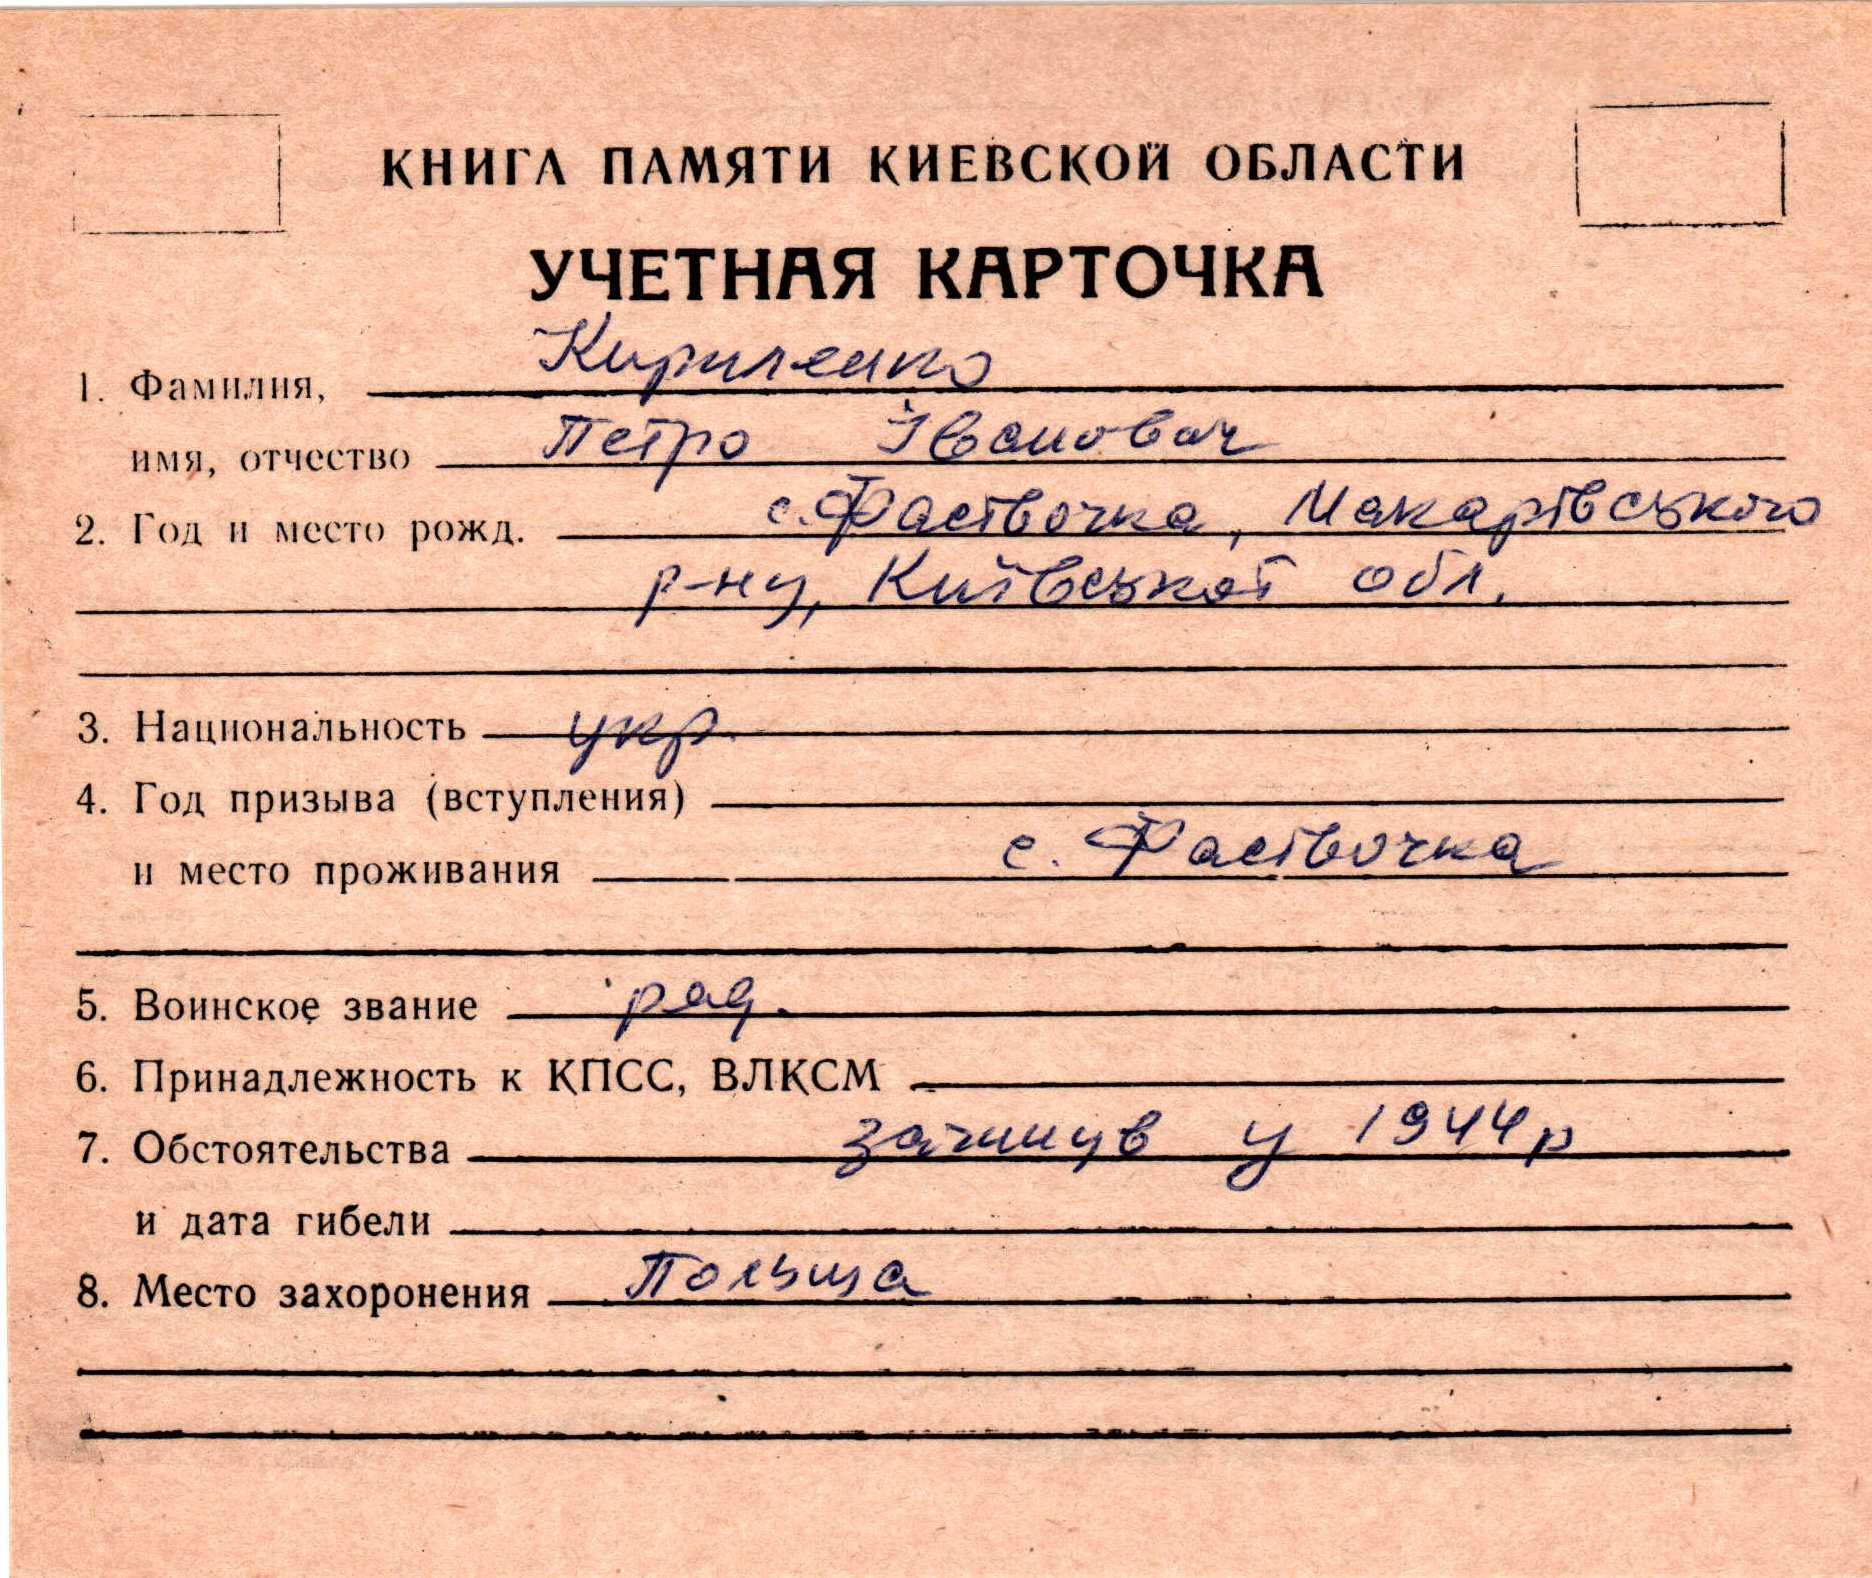 КНИГА ПАМЯТИ КИЕВСКОЙ ОБЛАСТИ
УЧЕТНАЯ КАРТОЧКА
1. Фамилия, Кириленко
имя, отчество Петро Іванович
2. Год и место рожд. с. Фастівочка, Макарівського
р-ну, Київської обл.
3. Национальность укр.
4. Год призыва (вступления)
и место проживания с. Фастівочка
5. Воинское звание ряд.
6. Принадлежность к КПСС, ВЛКСМ
7. Обстоятельства загинув у 1944 р
и дата гибели
8. Место захоронения Польща